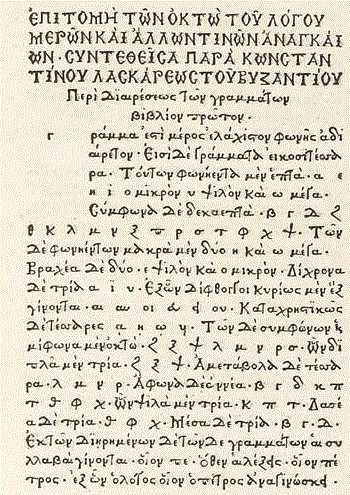 ἘΠΙΤΟΜῊ ΤΩ͂Ν ὈΚΤῺ ΤΟΥ͂ ΛΌΓΟΥ
ΜΕΡΩ͂Ν ΚΑῚ ἌΛΛΩΝ ΤΙΝΩ͂Ν ἈΝΑΓΚΑΊ
ΩΝ · ΣΥΝΤΕΘΕΙ͂ΣΑ ΠΑΡᾺ ΚΩΝΣΤΑΝ
ΤΊΝΟΥ ΛΑΣΚΆΡΕΩΣ ΤΟΥ͂ ΒΥΖΑΝΤΊΟΥ
Περὶ διαιρέσεως τῶν γραμμάτων
βιβλίον πρῶτον ·
Γ ράμμα ἐστὶ μέρος ἐλάχιστον φωνῆς ἀδι
αίρετον · Εἰσὶ δὲ γράμματα εἰκοσιτέσσα
ρα · Τούτων φωνήεντα μὲν ἑπτά · α ε
η ι ο μικρὸν υ ψιλὸν καὶ ω μέγα ·
Σύμφωνα δὲ δεκαεπτά · β γ δ ζ
θ κ λ μ ν ξ π ρ σ τ φ χ ψ · Τῶν
δὲ φωνηέντων μακρὰ μὲν δύο η καὶ ω μέγα ·
Βραχέα δὲ δύο · ε ψιλὸν καὶ ο μικρόν · Δίχρονα
δὲ τρία α ι υ · Ἐξ ὧν δίφθογγοι κυρίως μὲν ἓξ
γίνονται · αι αυ οι ει ευ ου · Καταχρηστικῶς
δὲ τέσσαρες ᾳ ῃ ῳ υι · Τῶν δὲ συμφώνων ἡ
μίφωνα μὲν ὀκτώ · ζ ξ ψ λ μ ν ρ σ · Ὧν δι
πλᾶ μὲν τρία · ζ ξ ψ · Ἀμετάβολα δὲ τέσσα
ρα · λ μ ν ρ · Ἄφωνα δὲ ἐννέα · β γ δ κ π
τ θ φ χ · Ὧν ψιλὰ μὲν τρία · κ π τ · Δασέ
α δὲ τρία · θ φ χ · Μέσα δὲ τρία · β γ δ ·
Ἐκ τῶν διῃρημένων δὲ τῶνδε γραμμάτων αἱ συ
λλαβαὶ γίνονται · οἷον πε · ὅθεν αἱ λέξεις · οἷον πέ
τρος · ἐξ ὧν ὁ λόγος οἷον ὁ πέτρος ἀναγινώσκει ·